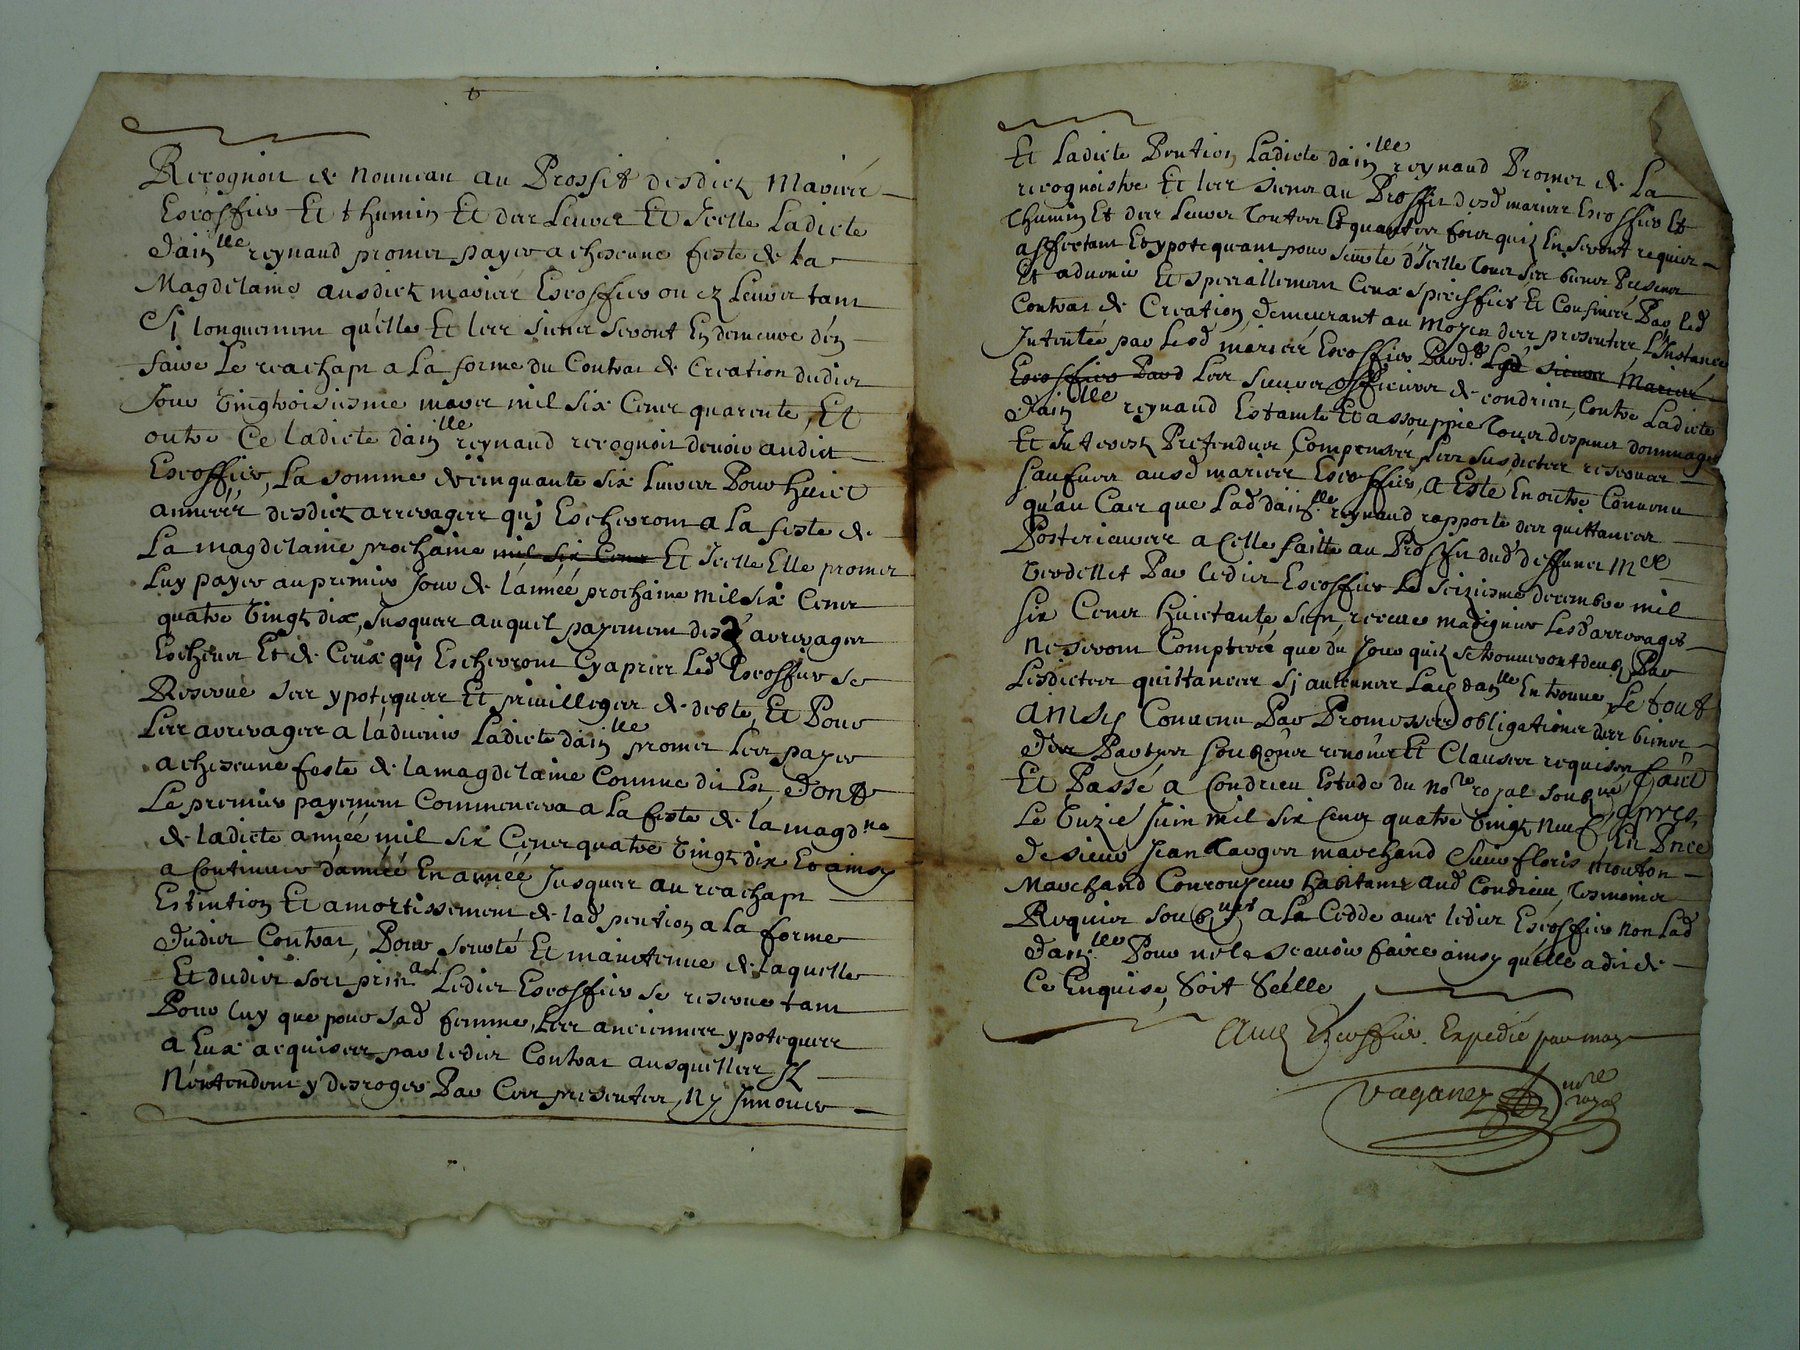 Recognoit de nouveau au Proffit desdictz Mariéz
Escoffier Et thumin Et des Leurs Et Icelle Ladicte
dainlle reynaud promet payer a chescune feste de la
Magdelaine ausdictz mariéz Escoffier ou ez Leurs tant
Sy longuement qu'elle Et les siens seront En demeure d'en
faire Le reachapt a La forme du Contrat de Creation dudict
Jour vingtroisiesme mars mil six Cens quarente, Et
outre Ce ladicte dainlle reynaud recognoit devoir audict
Escoffier, La somme de cinquante six Livres Pour huict
années desdictz arrerages quj Escherront a La feste de
La magdelaine prochaine mil six Cens Et Icelle Elle promet
Luy payer au premier Jour de l'année prochaine mil six Cens
quatre vingtz dix, Jusques auquel payement desd arrerages
Escheus Et de Ceux quj Escherront Cy apres Led Escoffier se
Reserve ses ypoteques Et privilleges de debte, Et Pour
Les arrerages a l'advenir Ladicte dainlle promet Les payer
a chescune feste de la magdelaine Comme dit Est dont
Le premier payement Commencera a La feste de la magdne
de ladicte année mil six Cens quatre vingtz dix Et ainsy
a Continuer d'année En année Jusques au reachapt
Estintion Et amortissement de lad pention a la forme
dudict Contrat, Pour seurté Et maintenue de laquelle
Et dudict sort prinal Ledict Escoffier se reserve tant
Pour luy que pour sad femme, Les anciennes ypoteques
a Eux acquises par ledict Contrat ausquelles Ilz
N'entendent y desroger Par Ces presentes, Ny Innover
Et Ladicte Pention Ladicte dainlle reynaud Promet de La
recognoistre Et les siens au Proffit desd mariés Escoffier Et
thumin Et des Leurs toutes Et quantes fois quilz En seront requis
affectant Et ypotequant pour seurté d'Icelle tous ses biens Presens
Et advenir Et speciallement Ceux speciffiés Et Confinés Par led
Contrat de Creation, demeurant au moyen des presentes L'Instance
Intentée par lesd mariéz Escoffier Pard
Escoffier Pard Les sieurs officiers de condrieu, Contre Ladicte
dainlle reynaud Estainte Et assouppie tous despens dommages
Et Interestz Pretendus Compensés, Les susdictes reserves
saufves ausd mariés Escoffier, a Esté En outre Convenu
qu'au Cas que Lad dainlle reynaud rapporte des quittances
Posterieures a Celle faitte au Proffit dud deffunct Mre
verdellet Par ledict Escoffier Le seiziesme decembre mil
six Cens huictante sept, receue madignier Lesd arrerages
ne seront Comptés que du Jour quilz se trouveront deubs Par
Lesdictes quittances sj aucunnes Lad dainlle En trouve, Le tout
ainsy Convenu Par Promesses obligations des biens
des Partyes soubz renoncer Et Clauses requises faict
Et Passé a Condrieu Estude du nore royal soubzné apres
Le unzié Juin mil six Cens quatre vingtz neuf En Pnce
de sieur Jean Lauger marchand sieur floris
Marchand Conroyeur habitants aud Condrieu, tesmoins
Requis soubznés a La Cedde avec ledict Escoffier non Lad
dainlle Pour ne le scavoir faire ainsy qu'elle a dit de
Ce Enquise, Soit Séelle
Escoffier. Expedié par moy
nore
royal